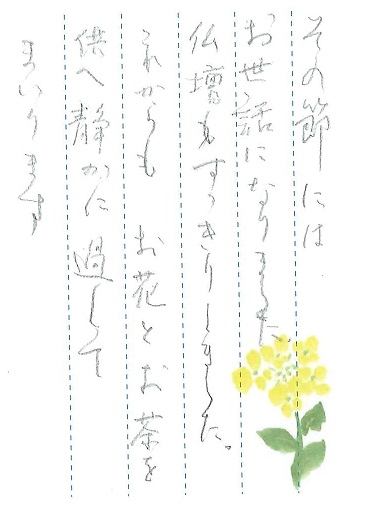 その節には
お世話になりました。
仏壇もすっきりしました。
これからも お花とお茶を
供へ静かに過して
まいります